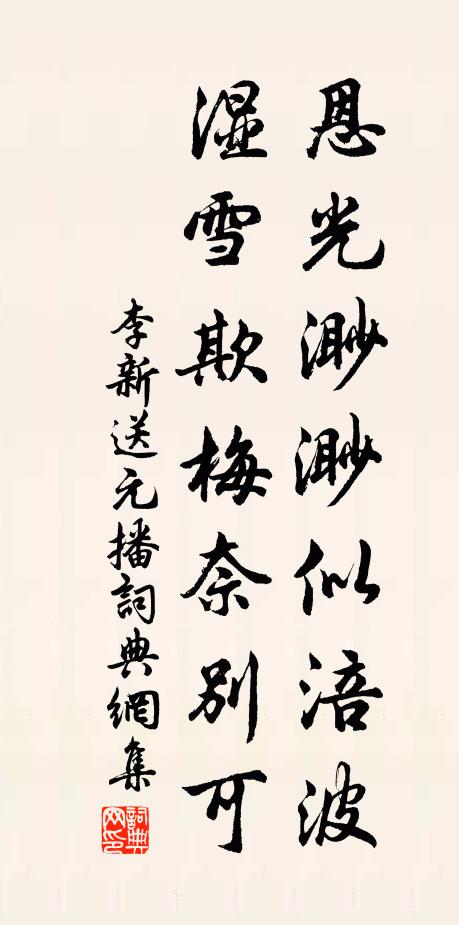 恩光渺渺似涪波
湿雪欺梅奈别可
李新送元播詞典網集
詞典网印